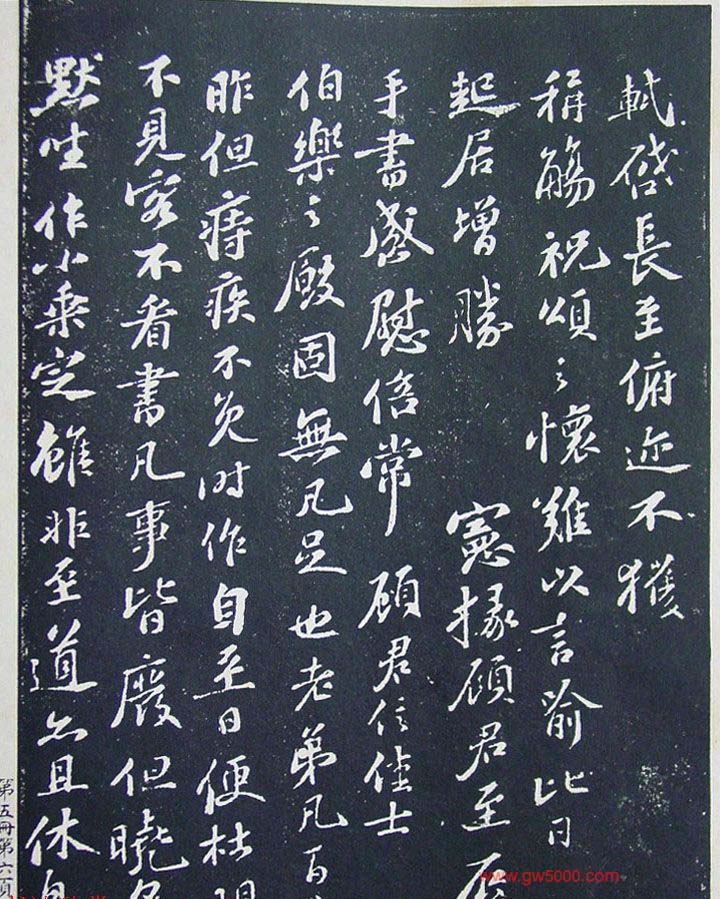 軾啓長至俯迩不獲
稱觴祝頌之懷難以言喻比日
起居增勝 憲掾顧君至辱
手書感慰倍常顧君信佳士
伯樂之廐固無凡足也老弟凡百
昨但痔疾不免時作自至日便杜門
不見客不看書凡事皆廢但曉
默坐作小乘定雖非至道亦且休息
第五冊第六頁
www.gw5000.com